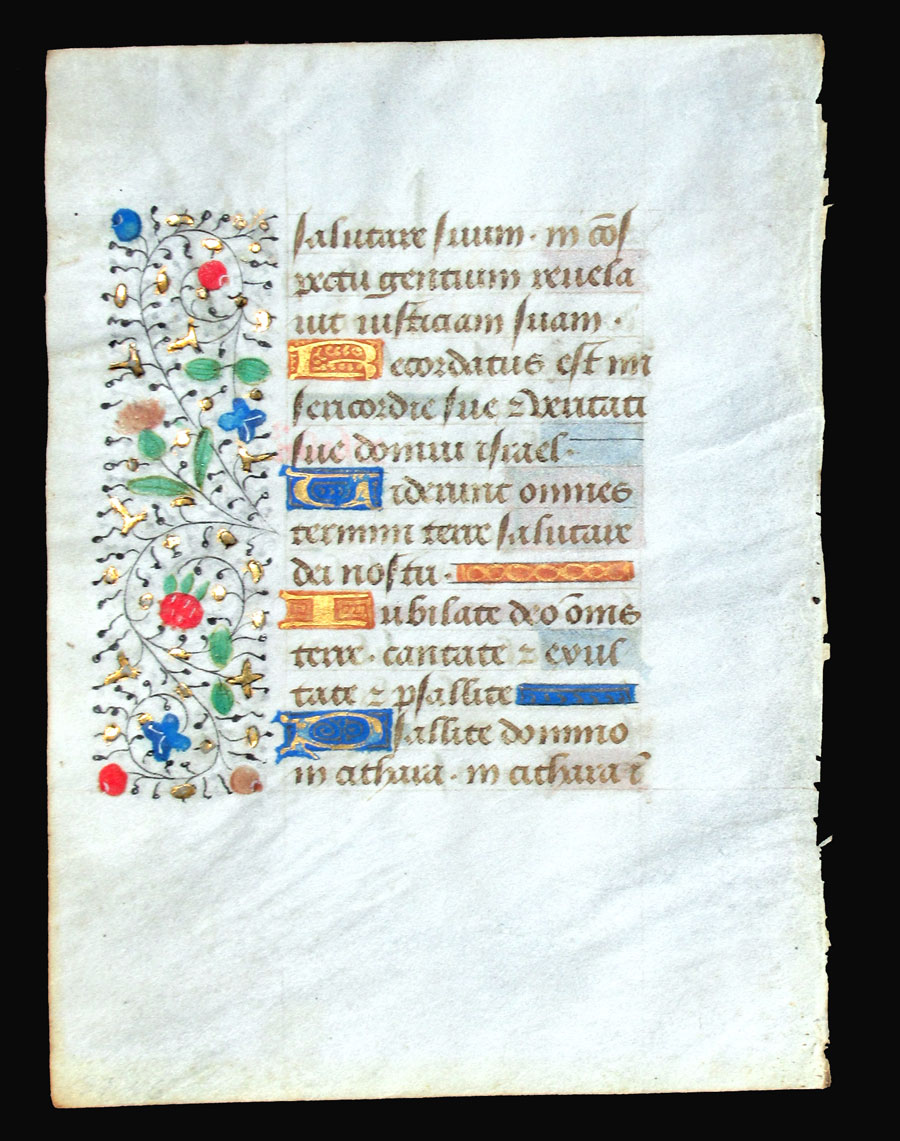 salutare suum · in cōs
pectu gentium revela
vit iusticiam suam ·
Recordatus est mi
sericordie sue ⁊ veritati
sue domui israel ·
Viderunt omnes
termini terre salutare
dei nostri ·
Iubilate deo om̄s
terre · cantate ⁊ exul
tate ⁊ psallite
Psallite domino
in cithara · in cithara ⁊